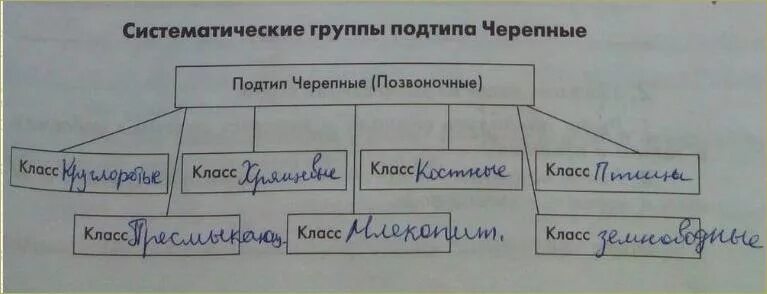 Систематические группы подтипа Черепные
Подтип Черепные (Позвоночные)
Класс Круглоротые
Класс Хрящевые
Класс Костные
Класс Птицы
Класс Пресмыкающ.
Класс Млекопит.
Класс земноводные